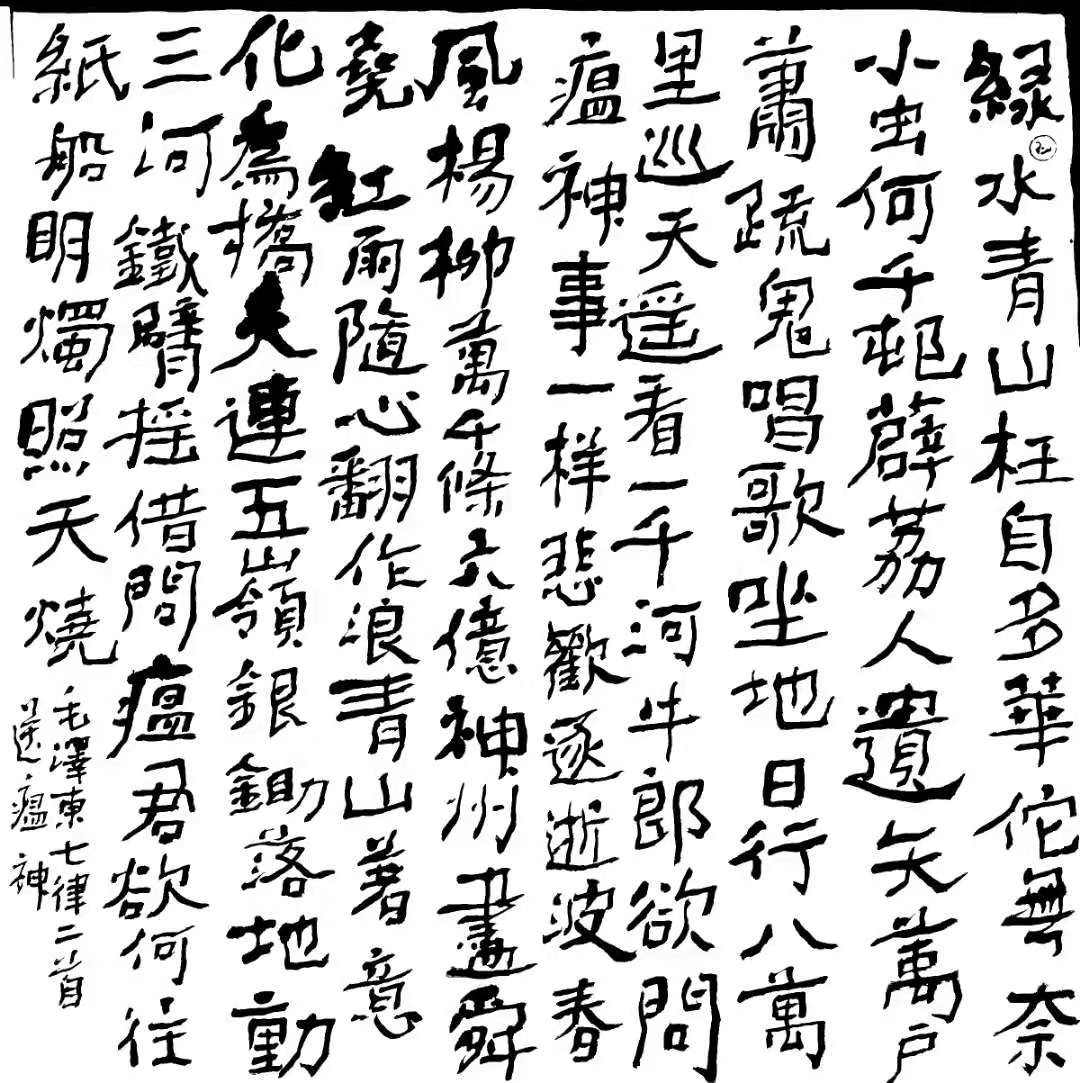 緑水青山枉自多華佗無奈
小虫何千邨薜荔人遺矢萬户
蕭疏鬼唱歌坐地日行八萬
里巡天遥看一千河牛郎欲問
瘟神事一样悲歡逐逝波春
風楊柳萬千條六億神州盡舜
堯紅雨隨心翻作浪青山著意
化爲橋天連五嶺銀鋤落地動
三河鐵臂摇借問瘟君欲何往
紙船明燭照天燒
毛澤東七律二首
送瘟神